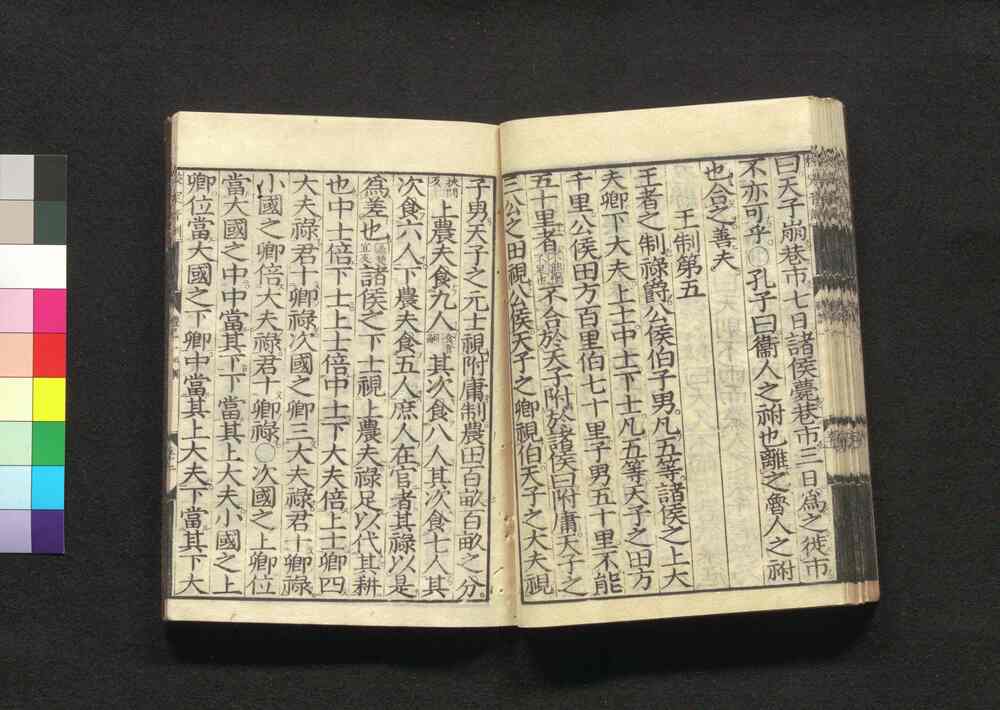 曰天子崩巷市七日諸侯薨巷市三日爲之徙市
不亦可乎孔子曰衞人之祔也離之魯人之祔
也合之善夫
王制第五
王者之制祿爵公侯伯子男凡五等諸侯之上大
夫卿下大夫上士中士下士凡五等天子之田方
千里公侯田方百里伯七十里子男五十里不能
五十里者不合於天子附於諸侯曰附庸天子之
三公之田視公侯天子之卿視伯天子之大夫視
子男天子之元士視附庸制農田百畝百畝之分
上農夫食九人其次食八人其次食七人其
次食六人下農夫食五人庶人在官者其祿以是
爲差也諸侯之下士視上農夫祿足以代其耕
也中士倍下士上士倍中士下大夫倍上士卿四
大夫祿君十卿祿次國之卿三大夫祿君十卿祿
小國之卿倍大夫祿君十卿祿次國之上卿位
當大國之中中當其下下當其上大夫小國之上
卿位當大國之下卿中當其上大夫下當其下大